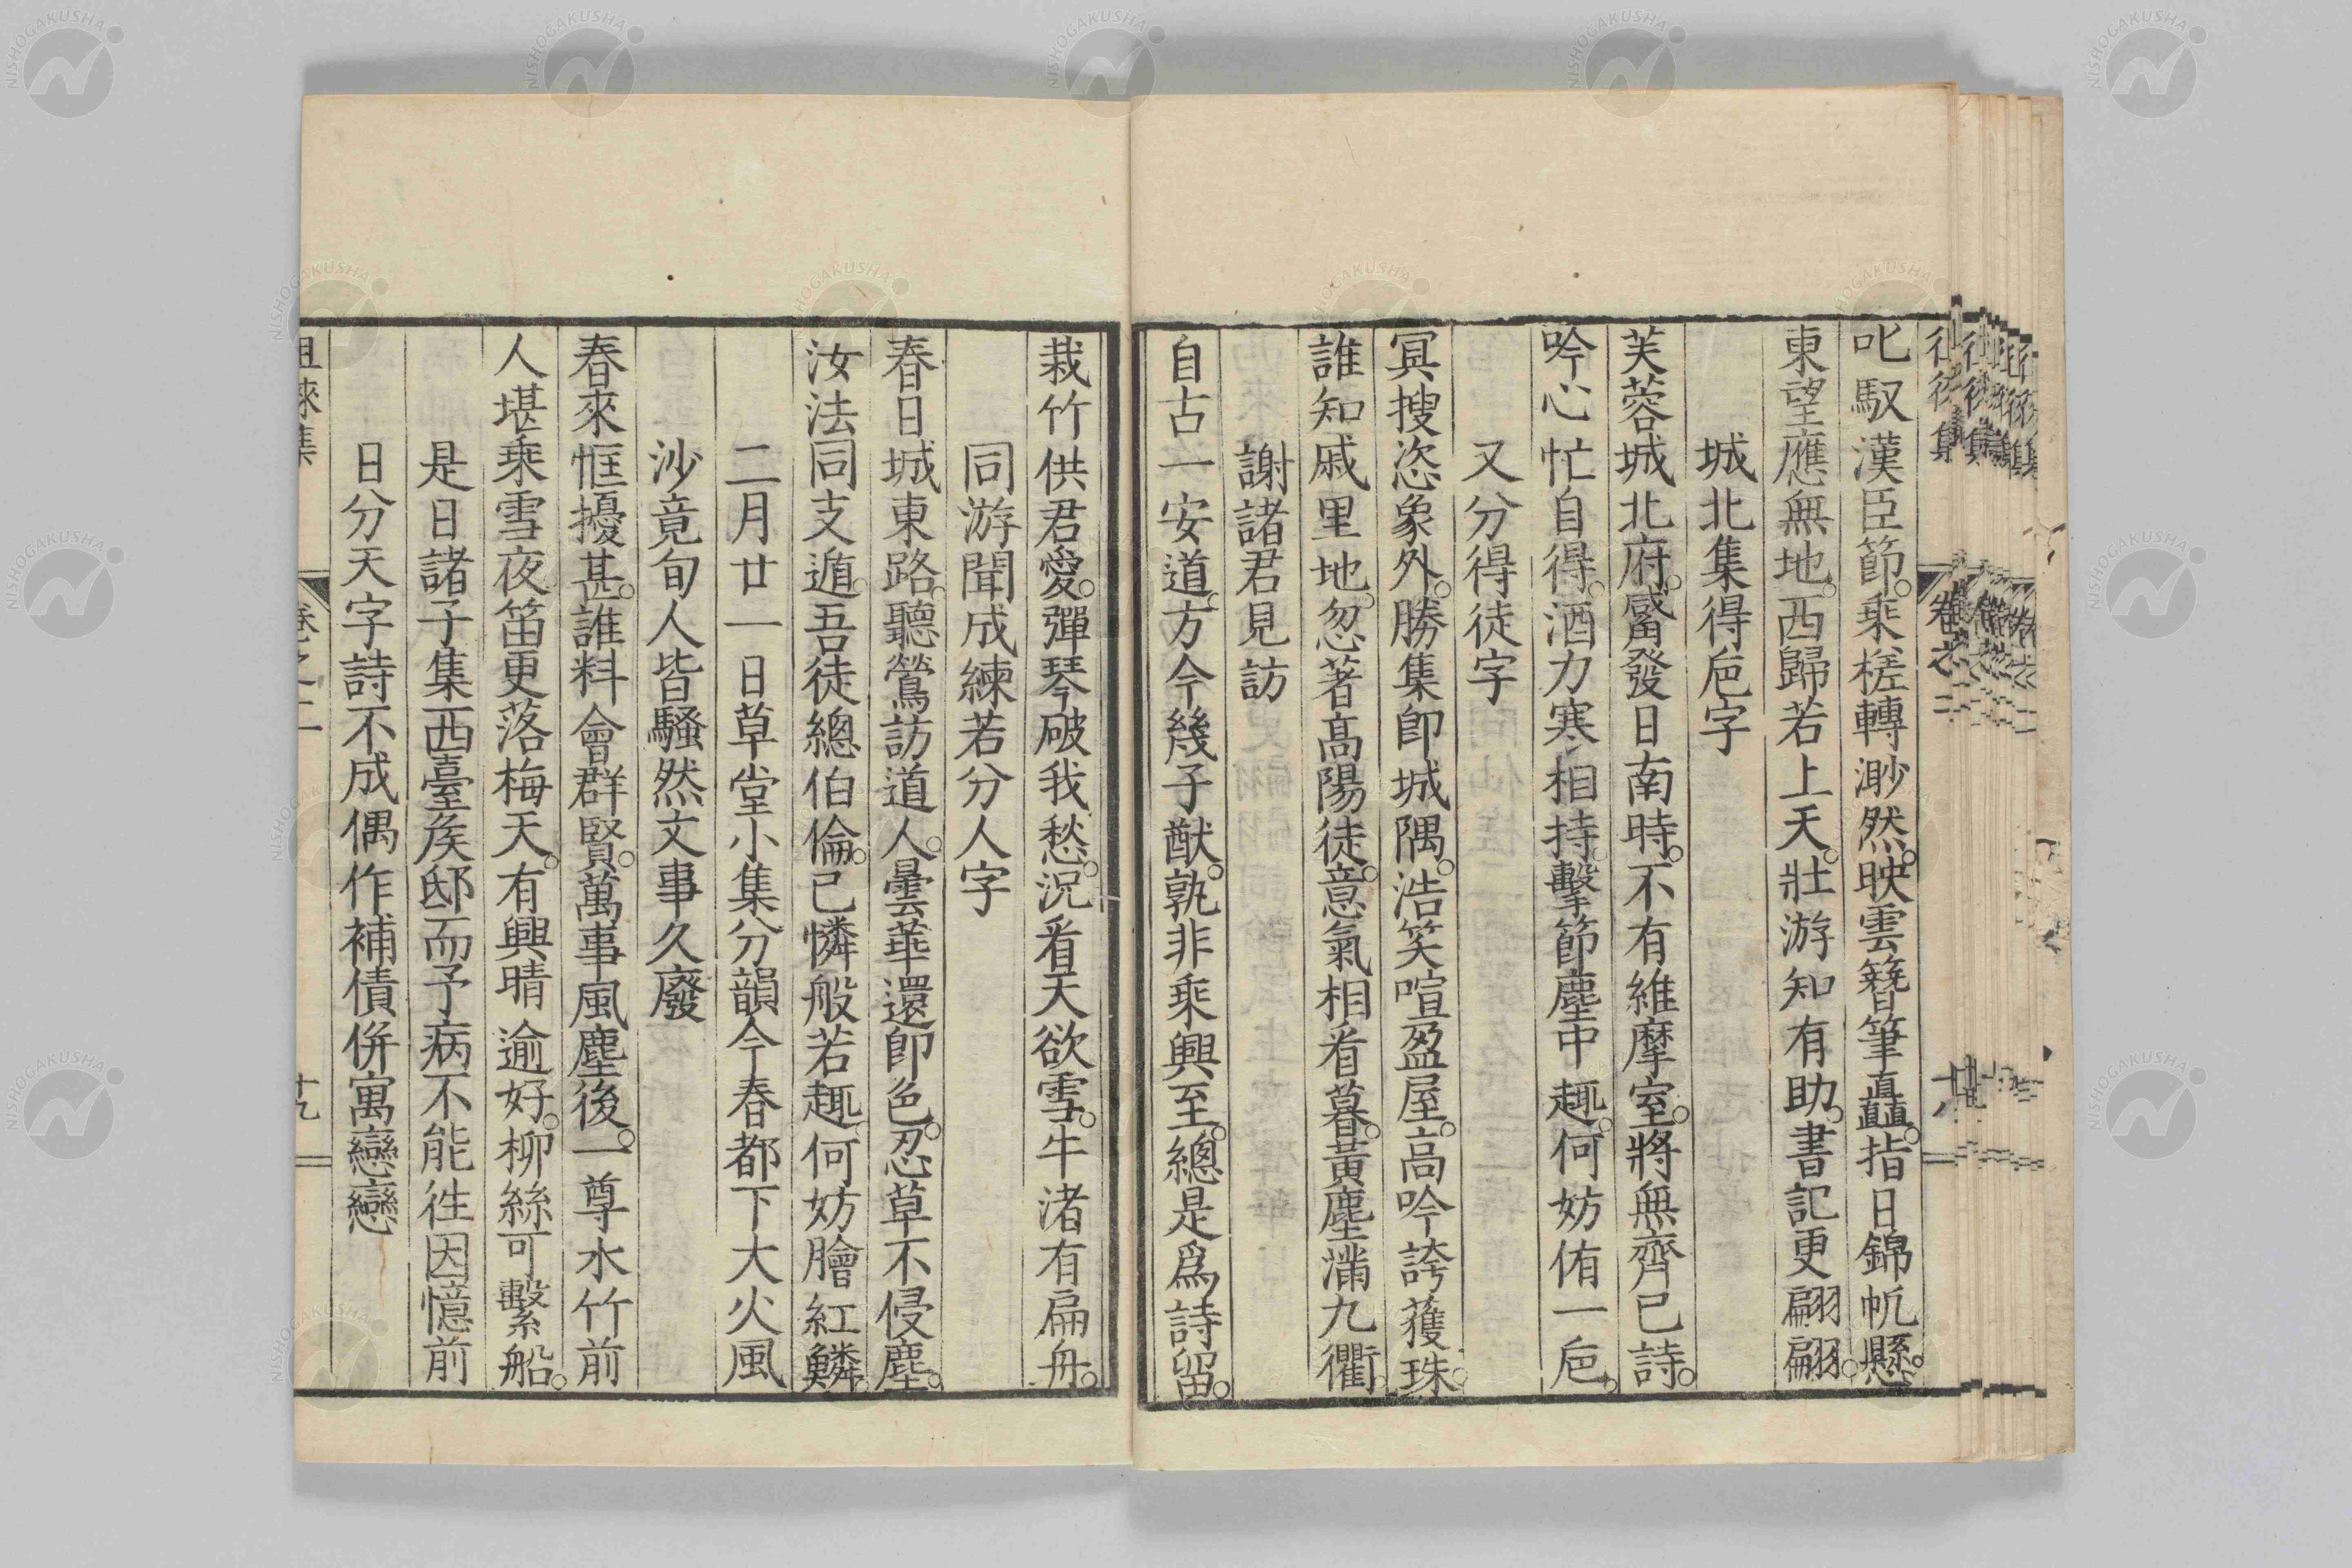 叱馭漢臣節。乘槎轉渺然。映雲簪筆直。指日錦帆懸。
東望應無地。西歸若上天。壯游知有助。書記更翩翩。
城北集得巵字
芙蓉城北府。觱發日南時。不有維摩室。將無齊已詩。
吟心忙自得。酒力寒相持。擊節塵中趣。何妨侑一巵。
又分得徒字
冥搜恣象外。勝集卽城隅。浩笑喧盈屋。高吟誇獲珠。
誰知戚里地。忽著髙陽徒。意氣相看暮。黃塵滿九衢。
謝諸君見訪
自古一安道。方今幾子猷。孰非乘興至。總是爲詩留。
栽竹供君愛。彈琴破我愁。況看天欲雪。牛渚有扁舟。
同游聞成練若分人字
春日城東路。聽鶯訪道人。曇華還卽色。忍草不侵塵。
汝法同支遁。吾徒總伯倫。已憐般若趣。何妨膾紅鱗。
二月廿一日草堂小集分韻今春都下大火風
沙竟旬人皆騷然文事久廢
春來恇擾甚。誰料會群賢。萬事風塵後。一尊水竹前
人堪乘雪夜。笛更落梅天。有興晴逾好。柳絲可繫船。
是日諸子集西臺矦邸而予病不能徃因憶前
日分天字詩不成偶作補債併寓戀戀
徂徠集
卷之二
十九
NISHOGAKUSHA